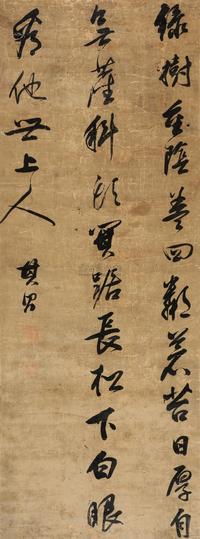 綠樹重陰蓋四鄰蒼苔日厚自
無塵科頭箕踞長松下白眼
看他世上人 其昌